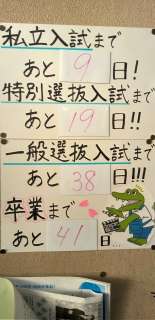 私立入試まで
あと 9 日!
特別選抜入試まで
あと 19 日!!
一般選抜入試まで
あと 38 日!!!
卒業まで
あと 41 日...